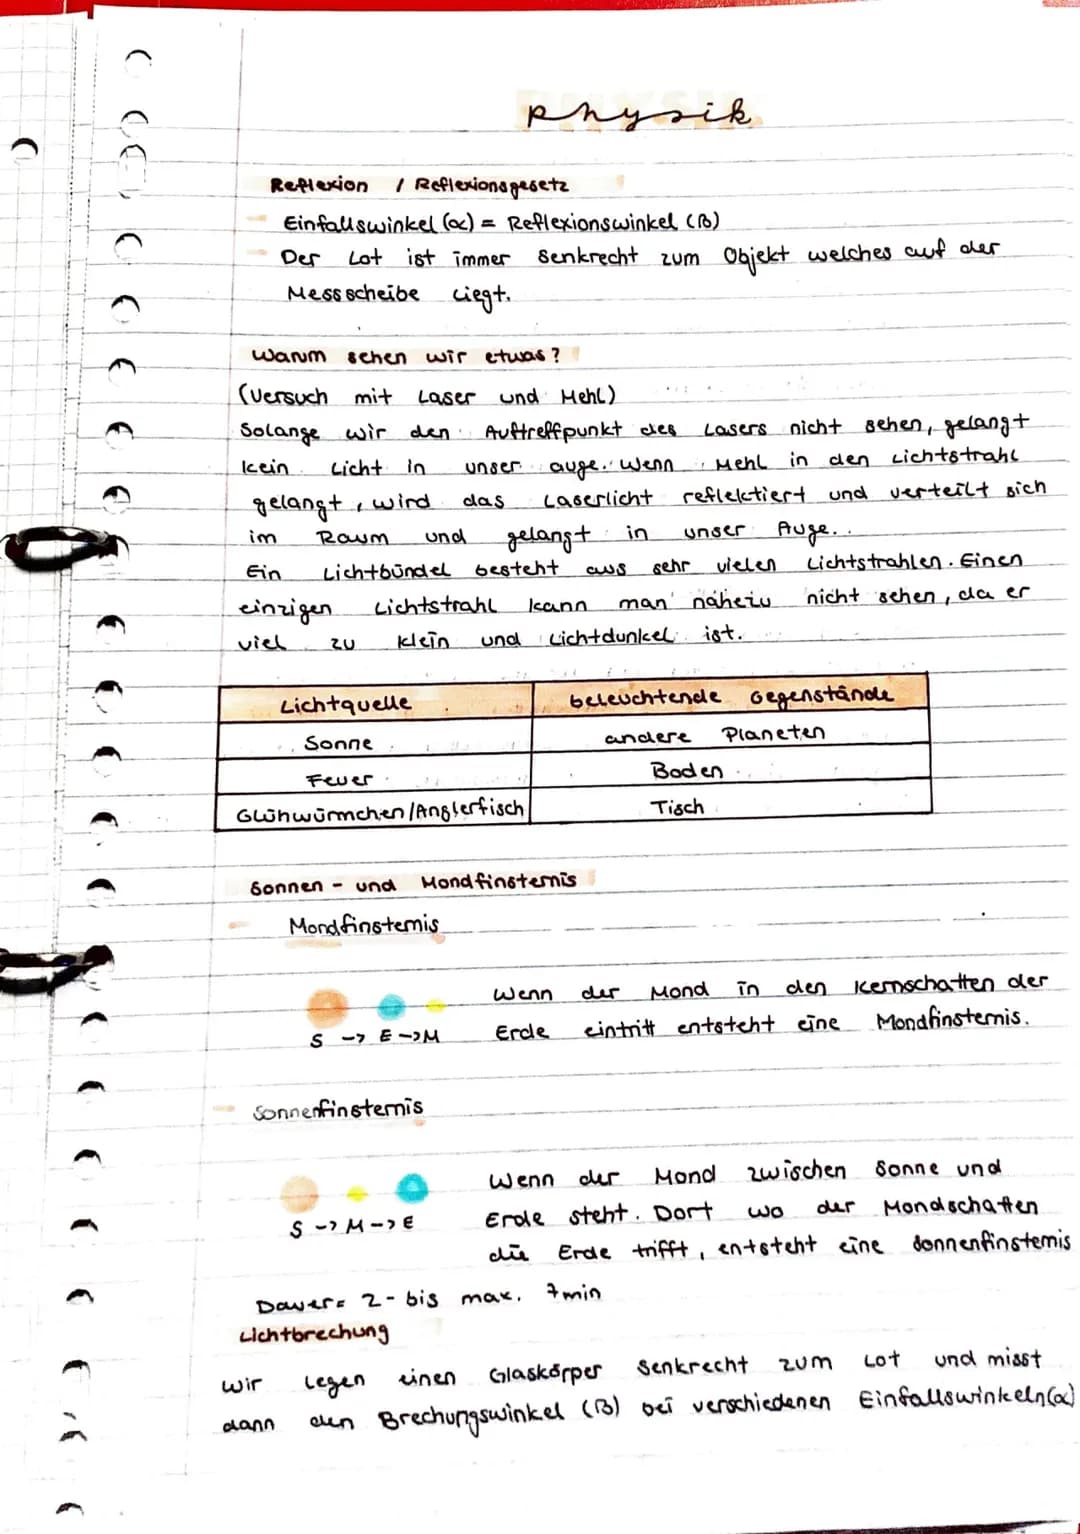 physik
Reflexion / Reflexionsgesetz
Einfallswinkel (α) = Reflexionswinkel (β)
Der Lot ist immer senkrecht zum Objekt welches auf der
Messscheibe liegt.
Warum sehen wir etwas?
(Versuch mit Laser und Mehl)
Solange wir den Auftreffpunkt des Lasers nicht sehen, gelangt
kein Licht in unser auge. Wenn Mehl in den Lichtstrahl
gelangt, wird das Laserlicht reflektiert und verteilt sich
im Raum und gelangt in unser Auge.
Ein Lichtbündel besteht aus sehr vielen Lichtstrahlen. Einen
einzigen Lichtstrahl kann man nahezu nicht sehen, da er
viel zu klein und Lichtdunkel ist.
Lichtquelle beleuchtende Gegenstände
Sonne andere Planeten
Feuer Boden
Glühwürmchen/Anglerfisch Tisch
Sonnen- und Mondfinsternis
- Mondfinsternis
Wenn der Mond in den Kernschatten der
S -> E -> M Erde eintritt entsteht eine Mondfinsternis.
- Sonnenfinsternis
Wenn der Mond zwischen Sonne und
S -> M -> E Erde steht. Dort wo der Mondschatten
die Erde trifft, entsteht eine Sonnenfinsternis
Dauer= 2- bis max. 7min
Lichtbrechung
Wir legen einen Glaskörper senkrecht zum Lot und misst
dann den Brechungswinkel (β) bei verschiedenen Einfallswinkeln(α)